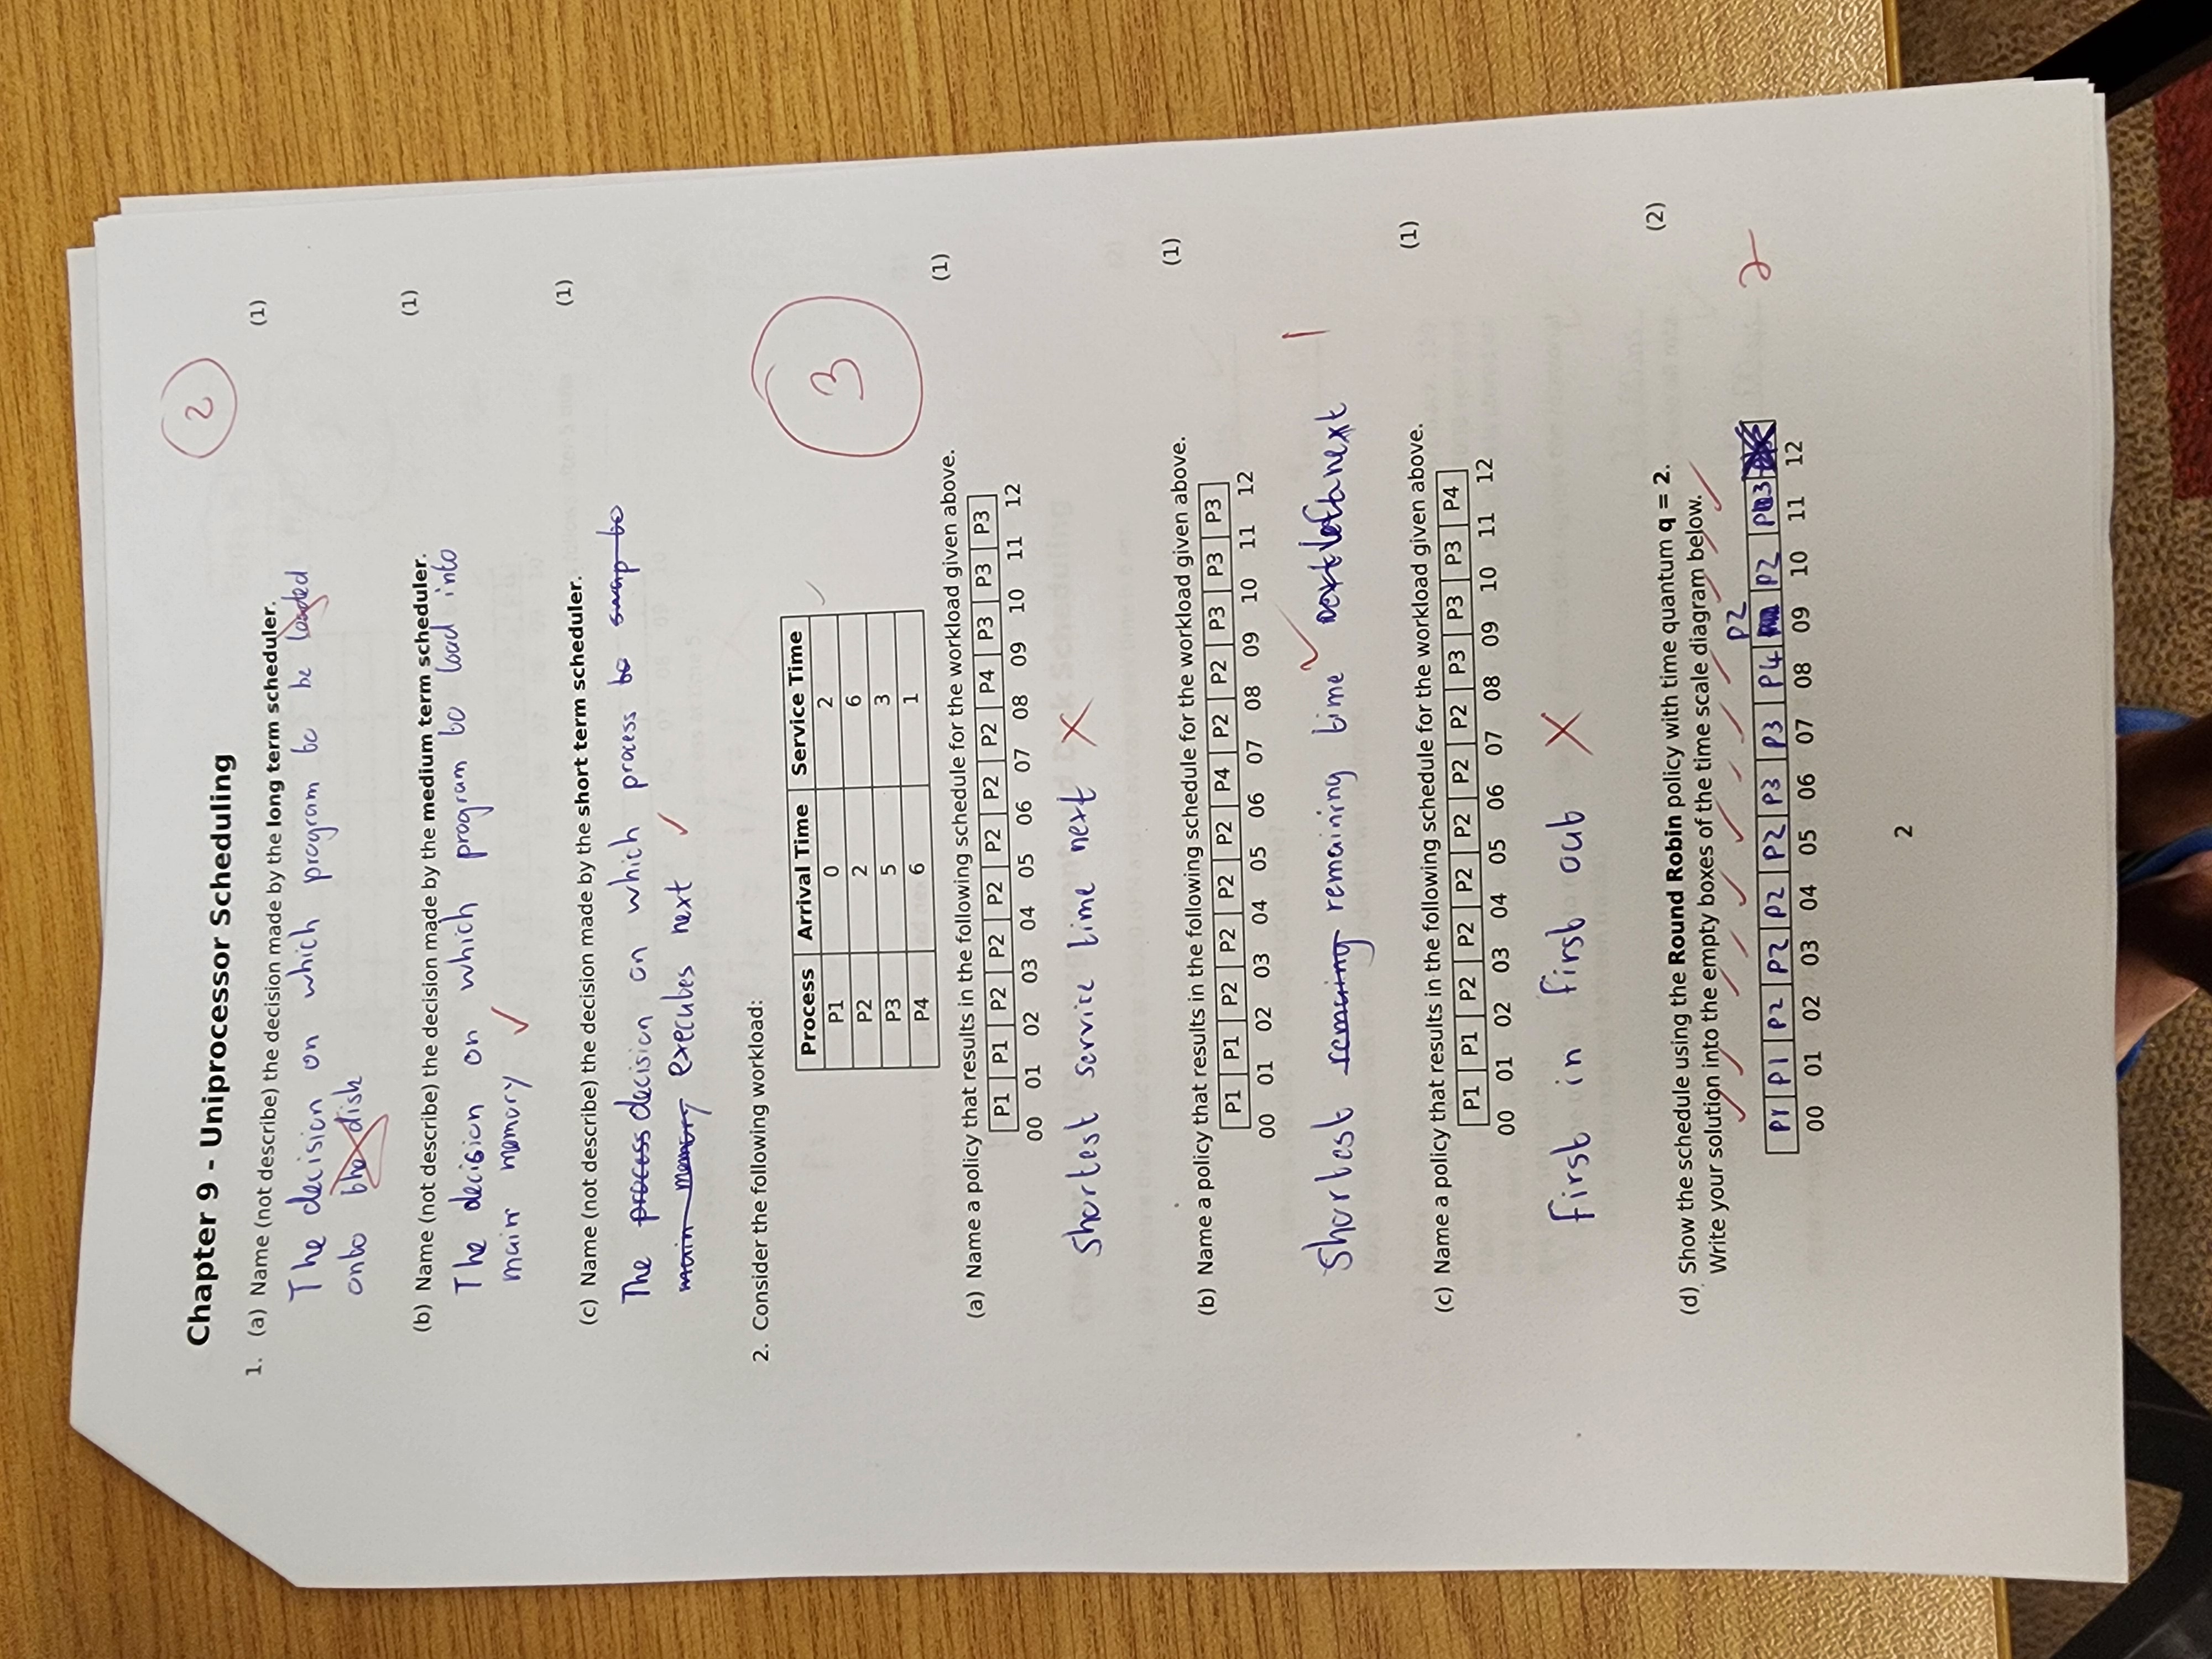 Chapter 9 - Uniprocessor Scheduling
2
1. (a) Name (not describe) the decision made by the long term scheduler. (1)
The decision on which program to be loaded
onto the disk
(b) Name (not describe) the decision made by the medium term scheduler. (1)
The decision on which program to load into
main memory
(c) Name (not describe) the decision made by the short term scheduler. (1)
The process decision on which process to swap to
main memory executes next
2. Consider the following workload:
Process Arrival Time Service Time
P1 0 2
P2 2 6
P3 5 3
P4 6 1
3
(a) Name a policy that results in the following schedule for the workload given above. (1)
P1 P1 P2 P2 P2 P2 P2 P2 P4 P3 P3 P3
00 01 02 03 04 05 06 07 08 09 10 11 12
Shortest service time next
(b) Name a policy that results in the following schedule for the workload given above. (1)
P1 P1 P2 P2 P2 P2 P4 P2 P2 P3 P3 P3
00 01 02 03 04 05 06 07 08 09 10 11 12
Shortest remaining time next 1
(c) Name a policy that results in the following schedule for the workload given above. (1)
P1 P1 P2 P2 P2 P2 P2 P2 P3 P3 P3 P4
00 01 02 03 04 05 06 07 08 09 10 11 12
first in first out
(d) Show the schedule using the Round Robin policy with time quantum q = 2. (2)
Write your solution into the empty boxes of the time scale diagram below.
P2
P1 P1 P2 P2 P2 P2 P3 P3 P4 P2 P3
2
00 01 02 03 04 05 06 07 08 09 10 11 12
2